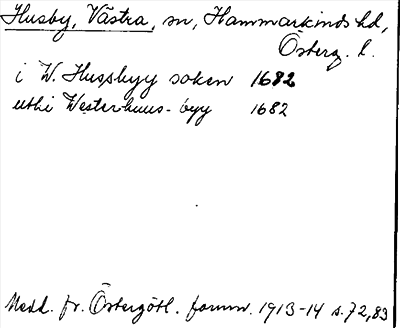 Husby, Västra, sn, Hammarkinds hd,
Österg. l.
i W. Hussbyy soken 1682
uthi Westerhuus-byy 1682
Medd. fr. Östergötl. fornm. 1913-14 s. 72, 83